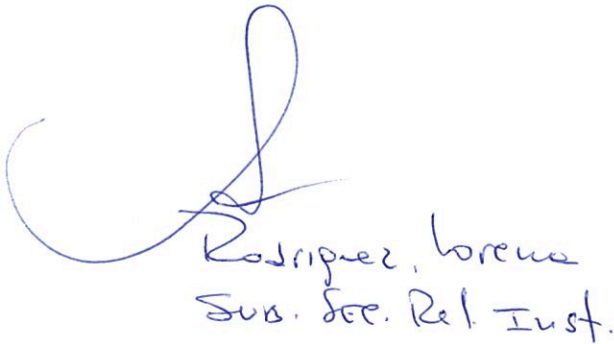 Rodriguez, Lorena
Sub. Sec. Rel. Inst.